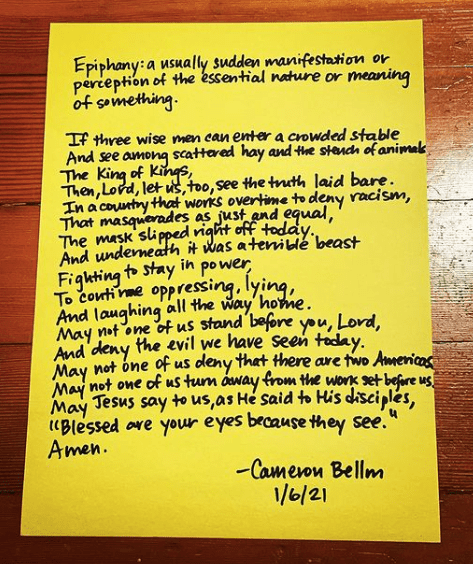 Epiphany: a usually sudden manifestation or
perception of the essential nature or meaning
of something.
If three wise men can enter a crowded stable
And see among scattered hay and the stench of animals
The King of Kings,
Then, Lord, let us, too, see the truth laid bare.
In a country that works overtime to deny racism,
That masquerades as just and equal,
The mask slipped right off today.
And underneath it was a terrible beast
Fighting to stay in power,
To continue oppressing, lying,
And laughing all the way home.
May not one of us stand before you, Lord,
And deny the evil we have seen today.
May not one of us deny that there are two Americas
May not one of us turn away from the work set before us.
May Jesus say to us, as He said to His disciples,
"Blessed are your eyes because they see."
Amen.
-Cameron Bellm
1/6/21